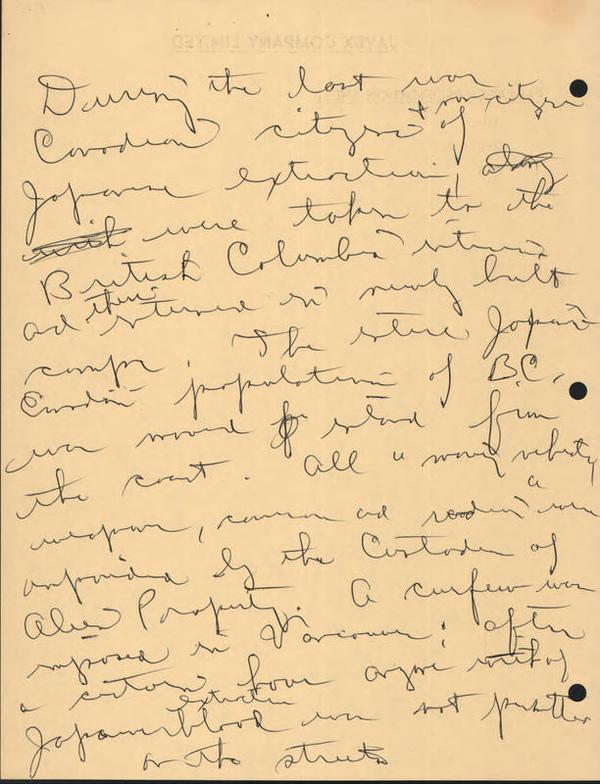 JAVEX COMPANY LIMITED
During the last war
Canadian citizens + non-citizen of
Japanese extraction,
were taken to the
British Columbia interior
and there interned in newly built
camps. The entire Japan
Canadian population of B.C.,
was moved inland from
the coast. All
weapons, cameras and radios were
impounded by the Custodian of
Alien Property. A curfew was
imposed in Vancouver; after
a certain hour anyone with of
Japanese extraction blood was not permitted
on the streets